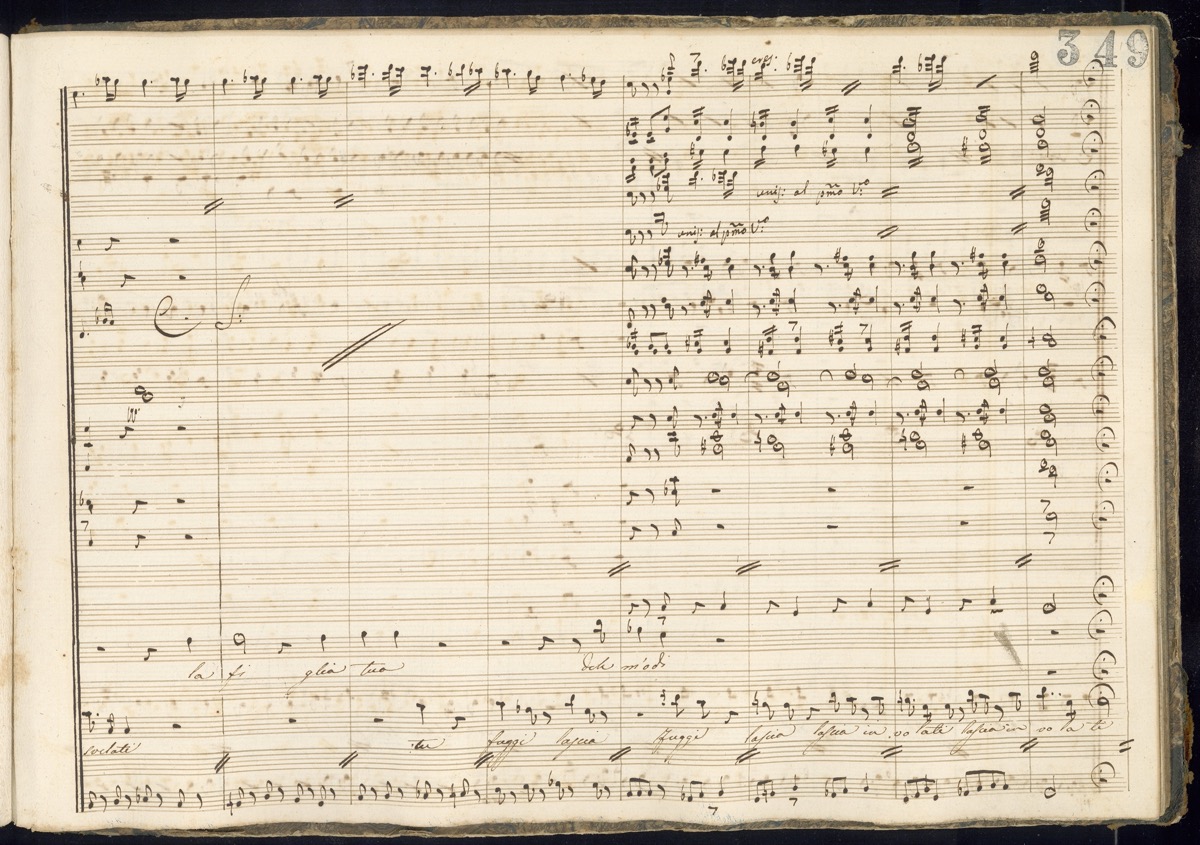 349
cres:
unis: al pmo Vo
unis: al pmo Vo
C. S:
la fi glia tua deh m'odi
tu fuggi lascia fuggi lascia lascia in vo late lascia in vo la te